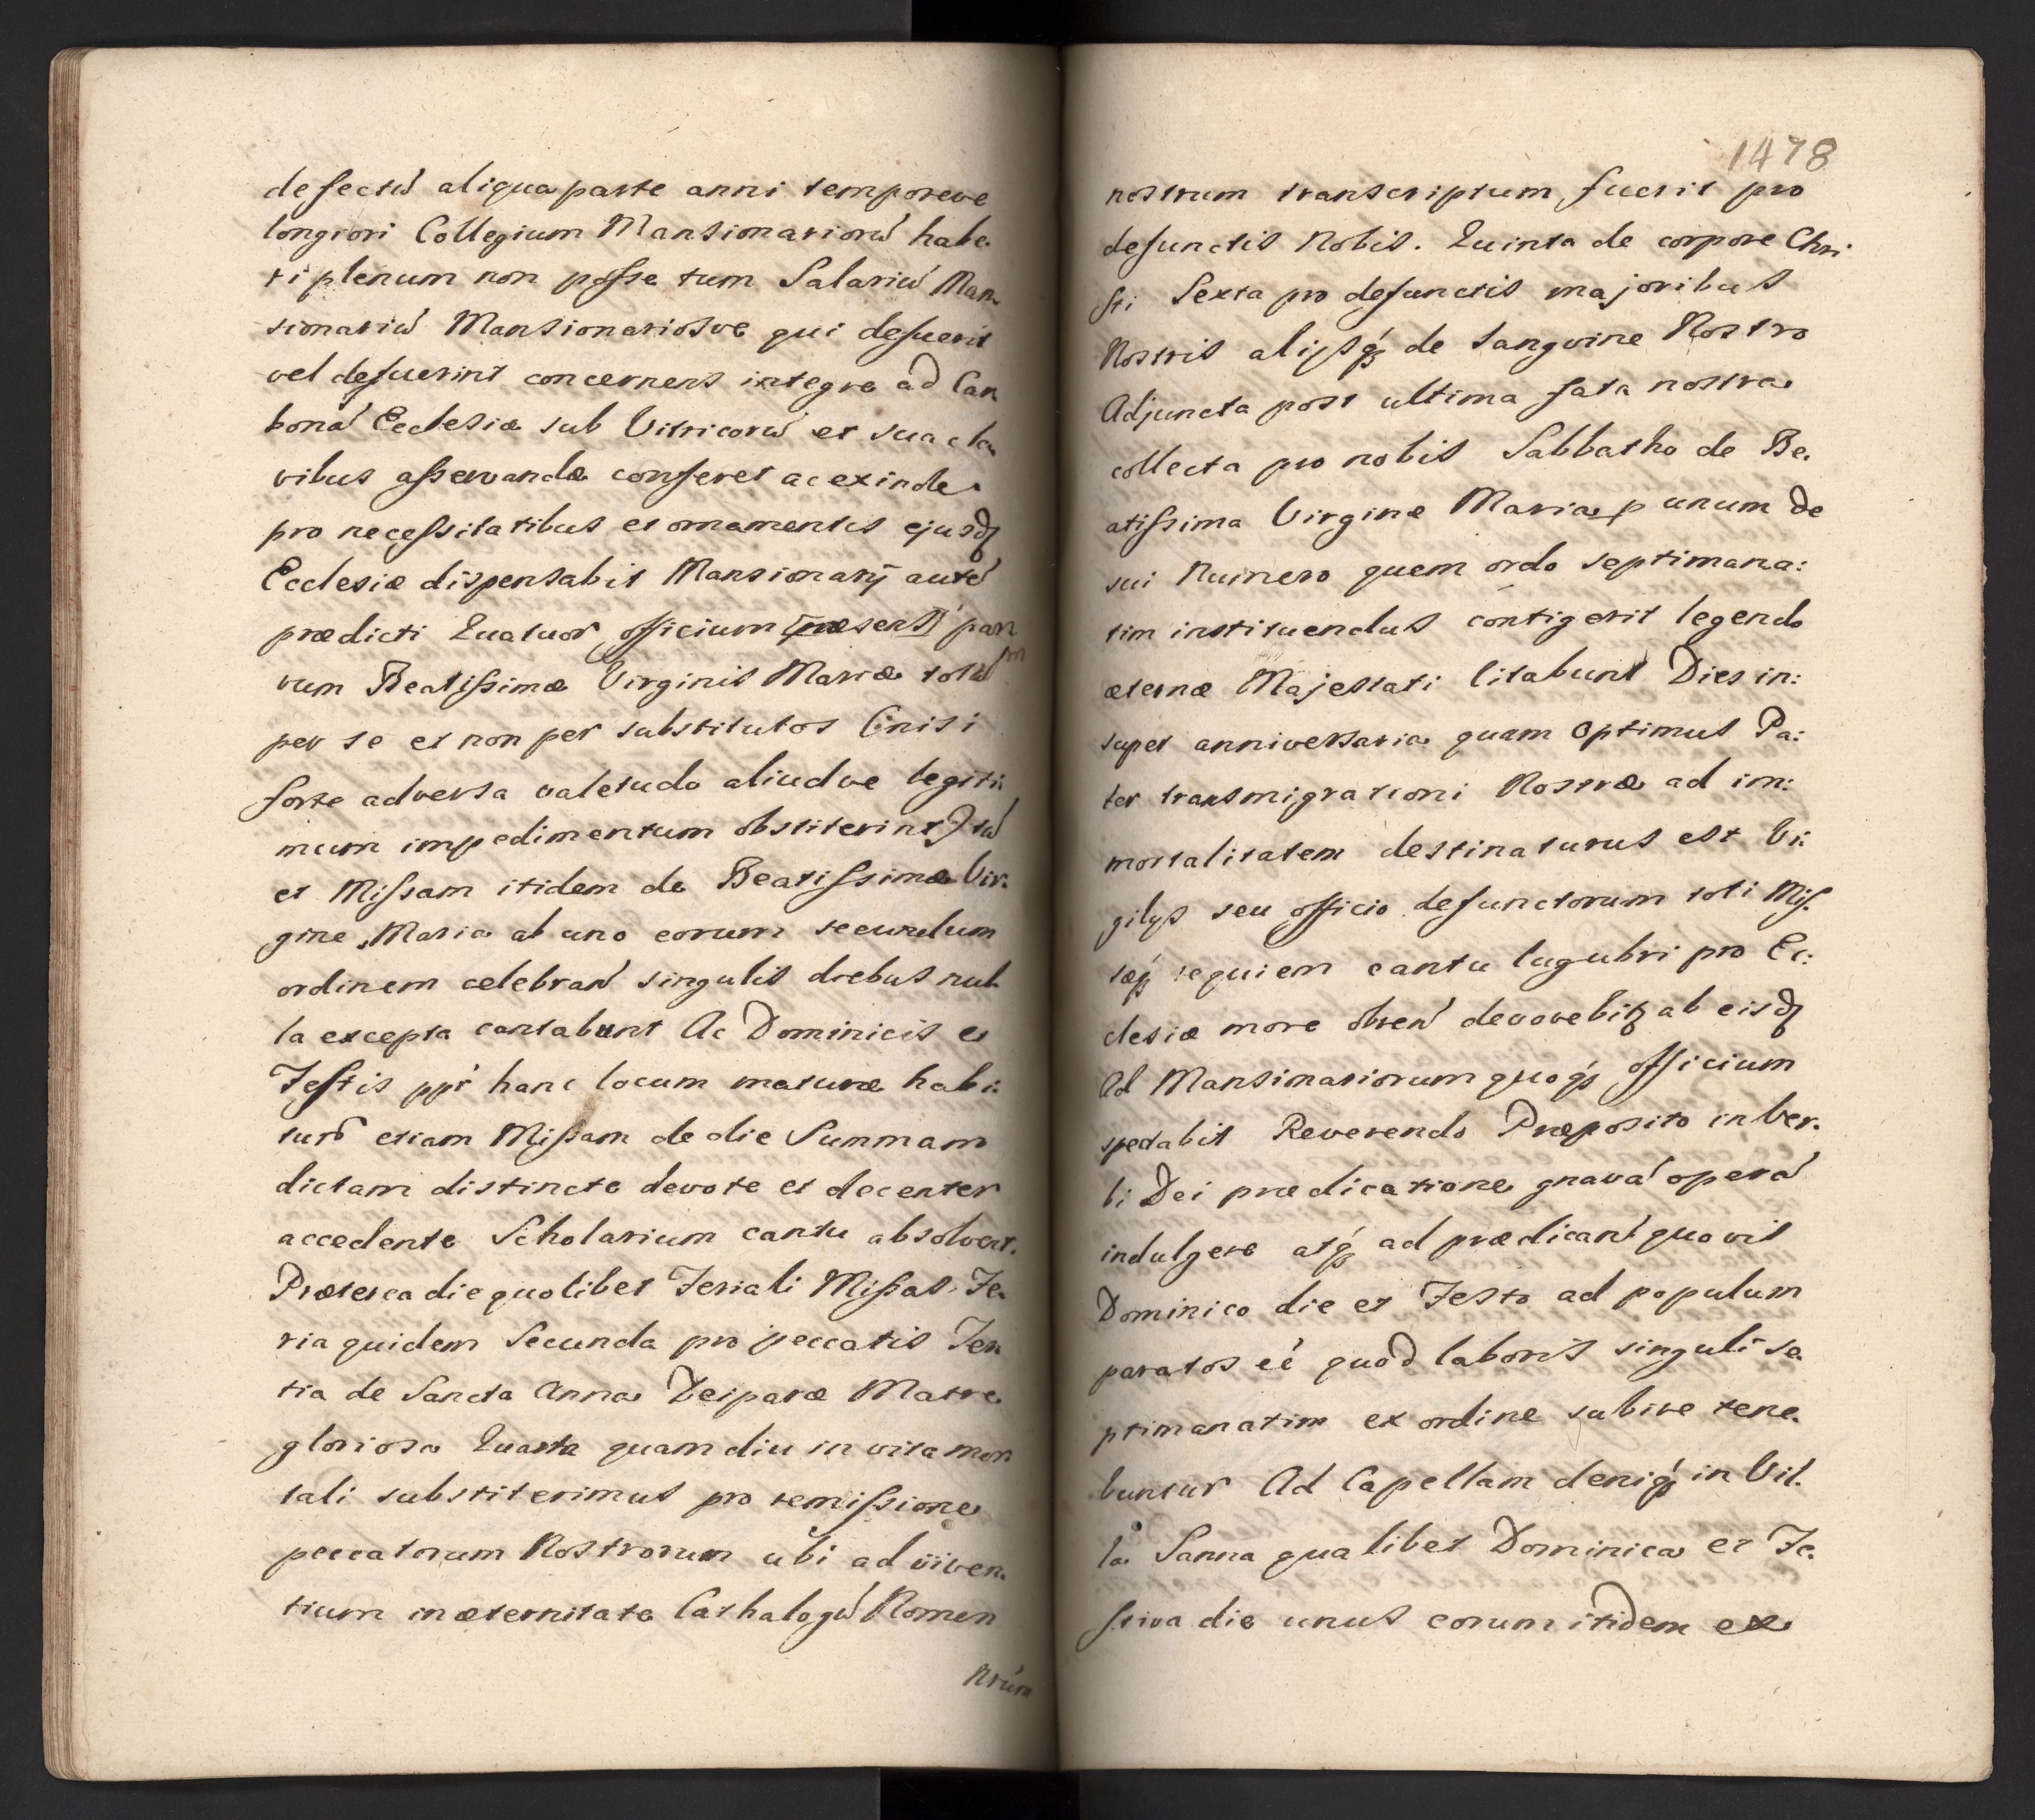 defectũ aliqua parte anni temporeve
longiori Collegium Mansionariorũ habe
ri plenum non posse tum Salariũ Man
sionariũ Mansionariosve qui defuerit
vel defuerint concernens integre ad Car
bonã Ecclesiæ sub Vitricorũ et sua cla
vibus asservanda conferet ac exinde
pro necessitatibus et ornamentis ejusdq
Ecclesiæ dispensabit Mansionarÿ autẽ
prædicti Quatuor officium præsens par
vum Beatissimæ Virginis Mariæ totũ m
per se et non per substitutos (nisi
forte adversa valetudo aliudve legiti
mum impedimentum obstiterint) tũ
et Missam itidem de Beatissima Vir:
gine Maria ab uno eorum secundum
ordinem celebrañ singulis diebus nul
la excepta cantabunt Ac Dominicis et
Festis ppr hanc locum mature habi:
turo etiam Missam de die Summam
dictam distincte devote et decenter
accedente Scholarium cantu absolvent.
Præterea die quolibet Feriali Missas. Fe
ria quidem Secunda pro peccatis Ter
tia de Sancta Anna Deiparæ Matre
gloriosa Quarta quamdiu in vita mor
tali substiterimus pro remissione
peccatorum Nostrorum ubi ad viven
tium in æternitate Cathalogũ Nomen
Nrum
1478
nostrum transcriptum fuerit pro
defunctis Nobis. Quinta de corpore Chri
sti Sexta pro defunctis majoribus
Nostris alijsq de Sangvine Nostro
Adjuncta post ultima fata nostra
collecta pro nobis Sabbatho de Be.
atissima Virgine Maria p unum de
sui Numero quem ordo septimana:
tim instituendus contigerit legendo
æternæ Majestati litabunt Dies in:
super anniversaria quam Optimus Pa:
ter transmigrationi Nostræ ad im:
mortalitatem destinaturus est Vi:
gilijs seu officio defunctorum toti Mis
sæq requiem cantu lugubri pro Ec:
clesiæ more obeñ devovebitq ab eisdq
Ad Mansinariorum quoq officium
spectabit Reverendo Præposito in Ver.
bi Dei prædicatione gnavã operã
indulgere atq ad prædicañ quovis
Dominico die et Festo ad populum
paratos eẽ quod laboris singuli se
ptimanatim ex ordine subire tene
buntur Ad Capellam deniq in Vil.
la Sanna qualibet Dominica et Fe.
stiva die unus eorum itidem ex